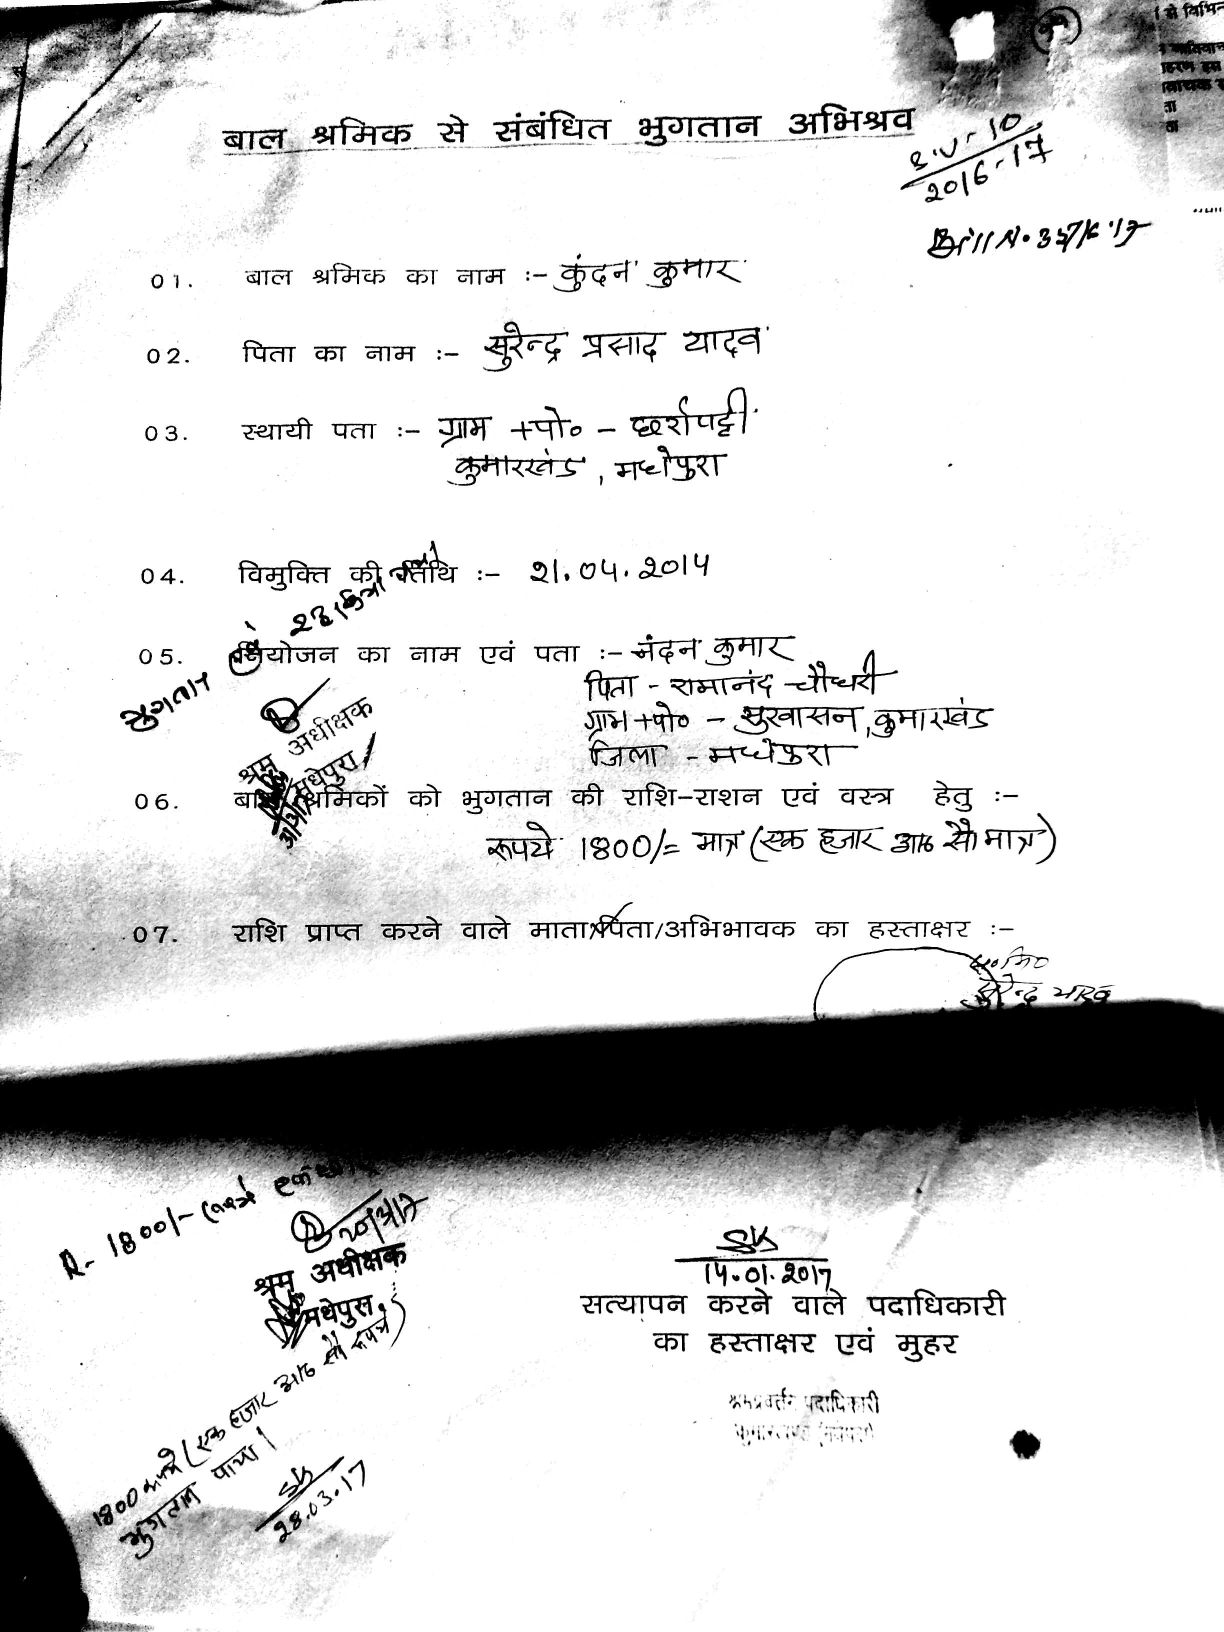 बाल श्रमिक से संबंधित भुगतान अभिश्रव
B.V - 10
2016-17
Bill N.
01. बाल श्रमिक का नाम :- कुंदन कुमार
02. पिता का नाम :- सुरेन्द्र प्रसाद यादव
03. स्थायी पता :- ग्राम +पो० -
कुमारखंड, मधेपुरा
04. विमुक्ति की तिथि :- 21.04.2014
05. नियोजन का नाम एवं पता :- नंदन कुमार
पिता - रामानंद चौधरी
ग्राम+पो० - सुखासन, कुमारखंड
जिला - मधेपुरा
भुगतान
श्रम अधीक्षक
मधेपुरा
06. बाल श्रमिकों को भुगतान की राशि-राशन एवं वस्त्र हेतु :-
रूपये 1800/= मात्र (एक हजार आठ सौ मात्र)
07. राशि प्राप्त करने वाले माता/पिता/अभिभावक का हस्ताक्षर :-
सुरेन्द्र यादव
R- 1800/-
श्रम अधीक्षक
मधेपुरा
14.01.2017
सत्यापन करने वाले पदाधिकारी
का हस्ताक्षर एवं मुहर
श्रम प्रवर्तन पदाधिकारी
1800 रूपये (एक हजार आठ सौ रूपये)
भुगतान पाया।
28.03.17